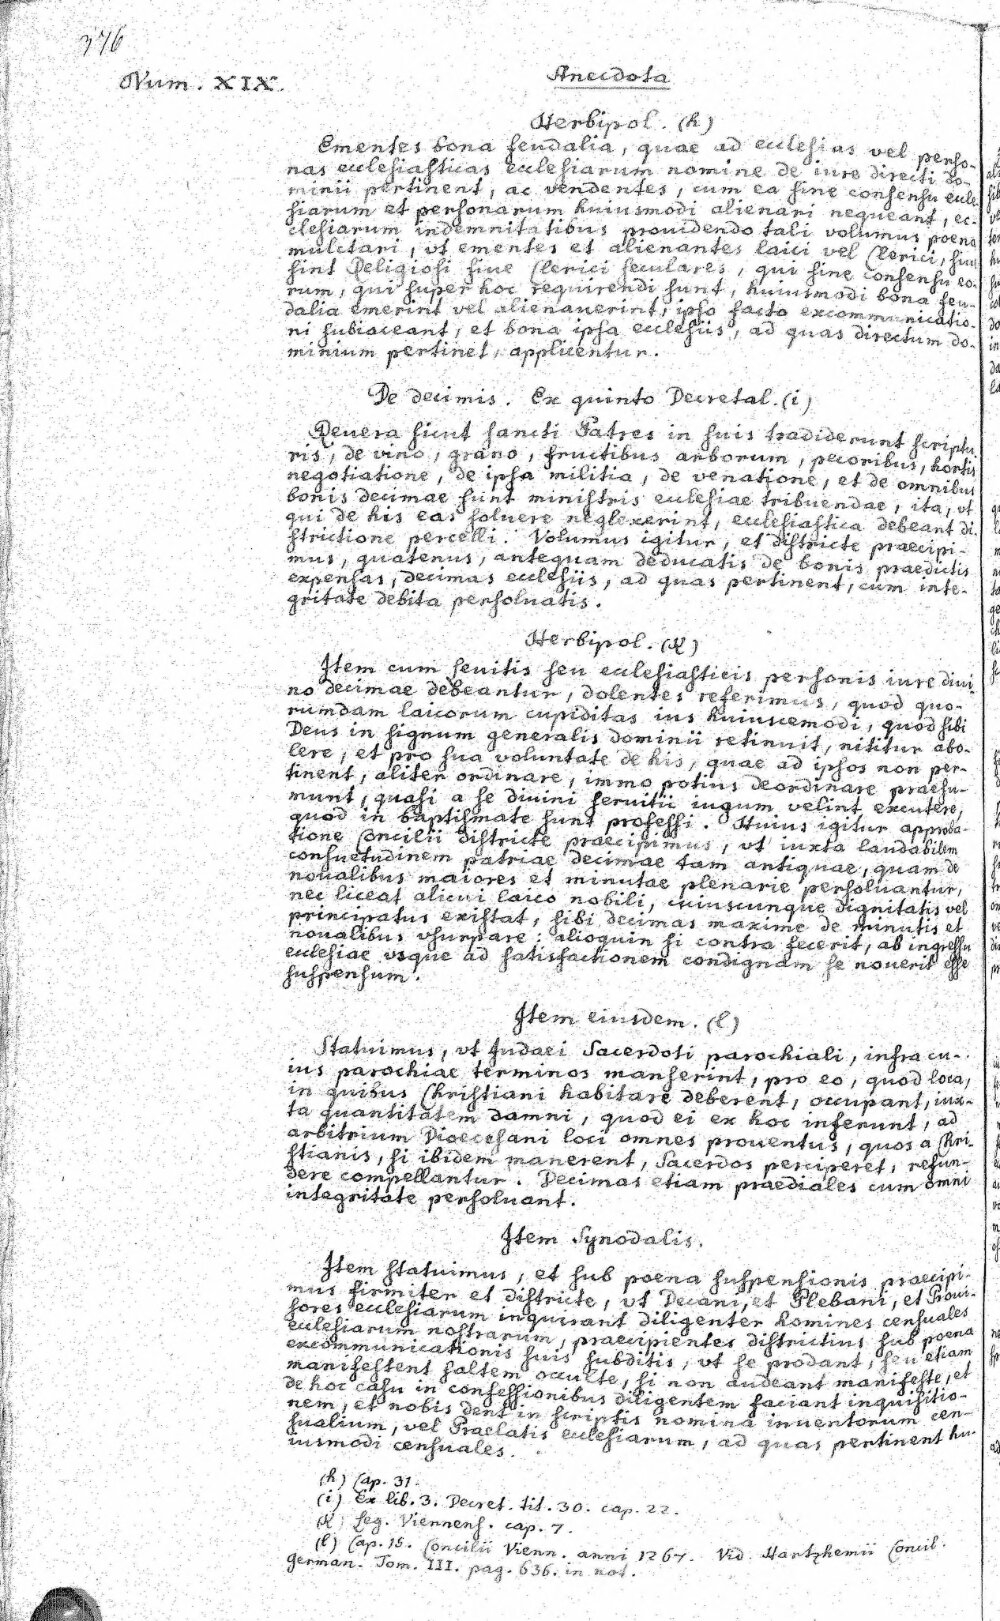 376
Num. XIX.
Anecdota
Herbipol. (h)
Ementes bona feudalia, quae ad ecclesias vel perso-
nas ecclesiasticas ecclesiarum nomine de iure directi do-
minii pertinent, ac vendentes, cum ea sine consensu eccle-
siarum et personarum huiusmodi alienari nequeant, ec-
clesiarum indemnitatibus prouidendo tali volumus poena
mulctari, vt ementes et alienantes laici vel Clerici, siue
sint Religiosi siue Clerici seculares, qui sine consensu eo-
rum, qui super hoc requirendi sunt, huiusmodi bona feu-
dalia emerint vel alienauerint, ipso facto excommunicatio-
ni subiaceant, et bona ipsa ecclesiis, ad quas directum do-
minium pertinet, applicentur.
De decimis. Ex quinto Decretal. (i)
Reuera sicut sancti Patres in suis tradiderunt scriptu
ris, de vino, grano, fructibus arborum, pecoribus, hortis
negotiatione, de ipsa militia, de venatione, et de omnibus
bonis decimae sunt ministris ecclesiae tribuendae, ita, vt
qui de his eas soluere neglexerint, ecclesiastica debeant di-
strictione percelli. Volumus igitur, et districte praecipi-
mus, quatenus, antequam deducatis de bonis praedictis
expensas, decimas ecclesiis, ad quas pertinent, cum inte-
gritate debita persoluatis.
Herbipol. (K)
Item cum leuitis seu ecclesiasticis personis iure diui
no decimae debeantur, dolentes referimus, quod quo-
rumdam laicorum cupiditas ius huiuscemodi, quod sibi
Deus in signum generalis dominii retinuit, nititur abo-
lere, et pro sua voluntate de his, quae ad ipsos non per-
tinent, aliter ordinare, immo potius deordinare praesu-
munt, quasi a se diuini seruitii iugum velint excutere,
quod in baptismate sunt professi. Huius igitur approba-
tione Concilii districte praecipimus, vt iuxta laudabilem
consuetudinem patriae decimae tam antiquae, quam de
noualibus maiores et minutae plenarie persoluantur,
nec liceat alicui laico nobili, cuiuscunque dignitatis vel
principatus existat, sibi decimas maxime de minutis et
noualibus vsurpare: alioquin si contra fecerit, ab ingressu
ecclesiae vsque ad satisfactionem condignam se nouerit esse
suspensum.
Item eiusdem. (l)
Statuimus, vt Judaei Sacerdoti parochiali, infra cu-
ius parochiae terminos manserint, pro eo, quod loca,
in quibus Christiani habitare deberent, occupant, iux-
ta quantitatem damni, quod ei ex hoc inferunt, ad
arbitrium Dioecesani loci omnes prouentus, quos a Chri-
stianis, si ibidem manerent, Sacerdos perciperet, refun-
dere compellantur. Decimas etiam praediales cum omni
integritate persoluant.
Item Synodalis.
Item statuimus, et sub poena suspensionis praecipi-
mus firmiter et districte, vt Decani, et Plebani, et Proui-
sores ecclesiarum inquirant diligenter homines censuales
ecclesiarum nostrarum, praecipientes districtius sub poena
excommunicationis suis subditis, vt se prodant, seu etiam
manifestent saltem occulte, si non audeant manifeste, et
de hoc casu in confessionibus diligentem faciant inquisitio-
nem, et nobis dent in scriptis nomina inuentorum cen-
sualium, vel Praelatis ecclesiarum, ad quas pertinent hu-
iusmodi censuales.
(h) Cap. 31.
(i) Ex lib. 3. Decret. tit. 30. cap. 22.
(K) Leg. Viennens. cap. 7.
(l) Cap. 15. Concilii Vienn. anni 1267. Vid. Hartzhemii Concil.
German. Tom. III. pag. 636. in not.